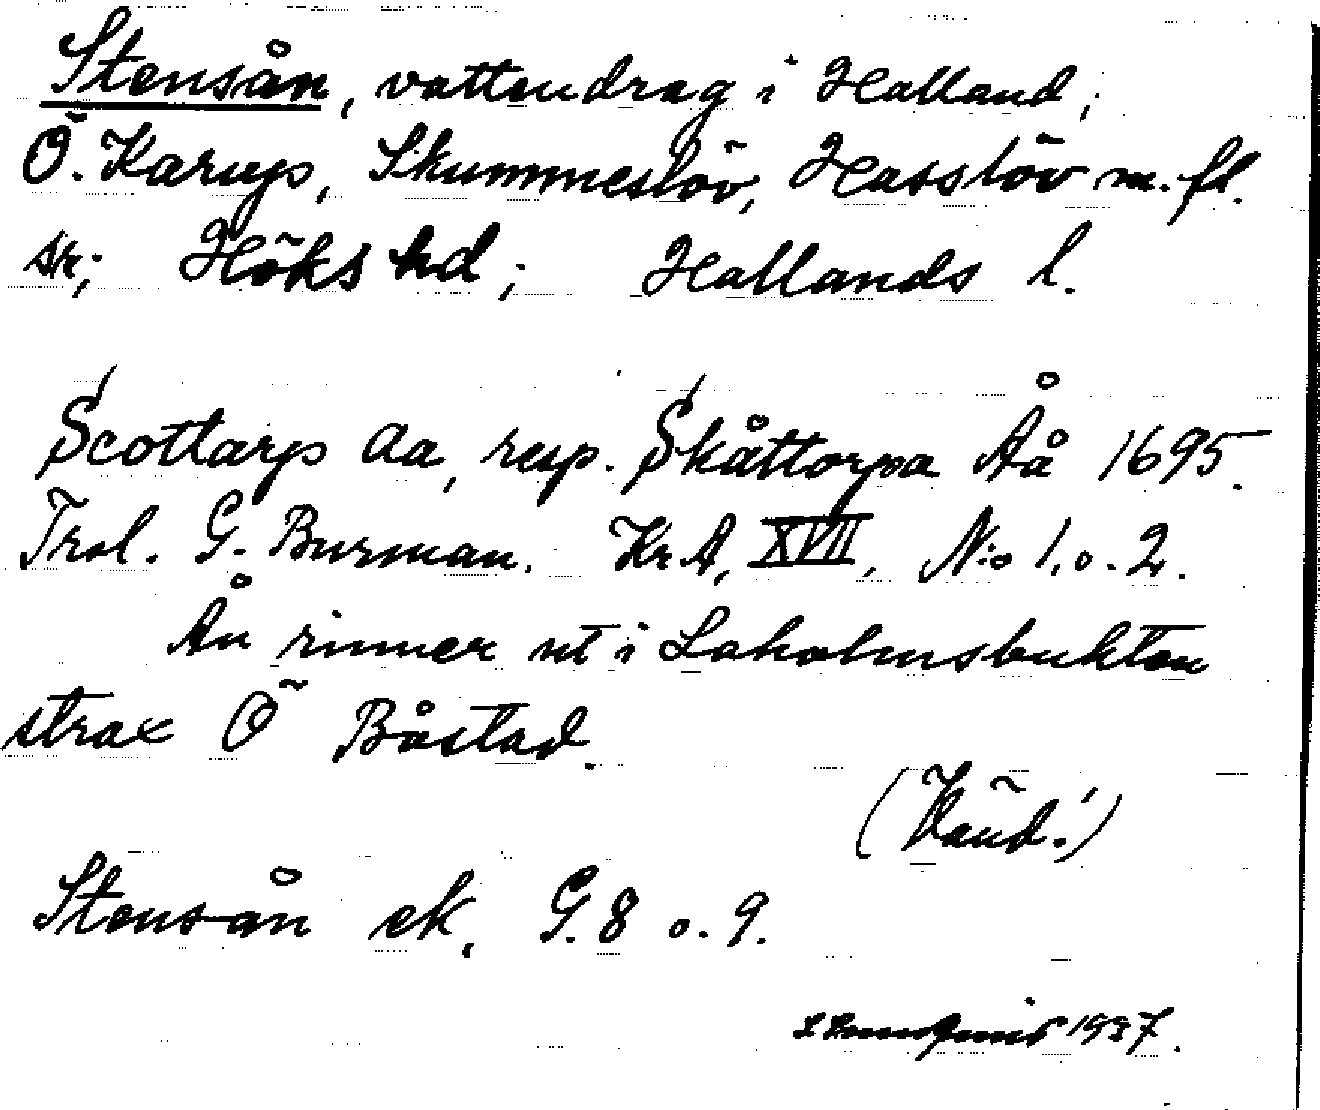 Stensån, vattendrag i Halland;
Ö. Karup, Skummeslöv, Hasslöv m. fl.
sr; Höks hd; Hallands l.
Scottarp Aa, resp. Skåttorpa Åå 1695.
Trol. G. Burman. Kr A, XVII, N:o 1. o. 2.
Ån rinner ut i Laholmsbukten
strax Ö Båstad.
(Vänd!)
Stensån ek. G. 8 o. 9.
1937.